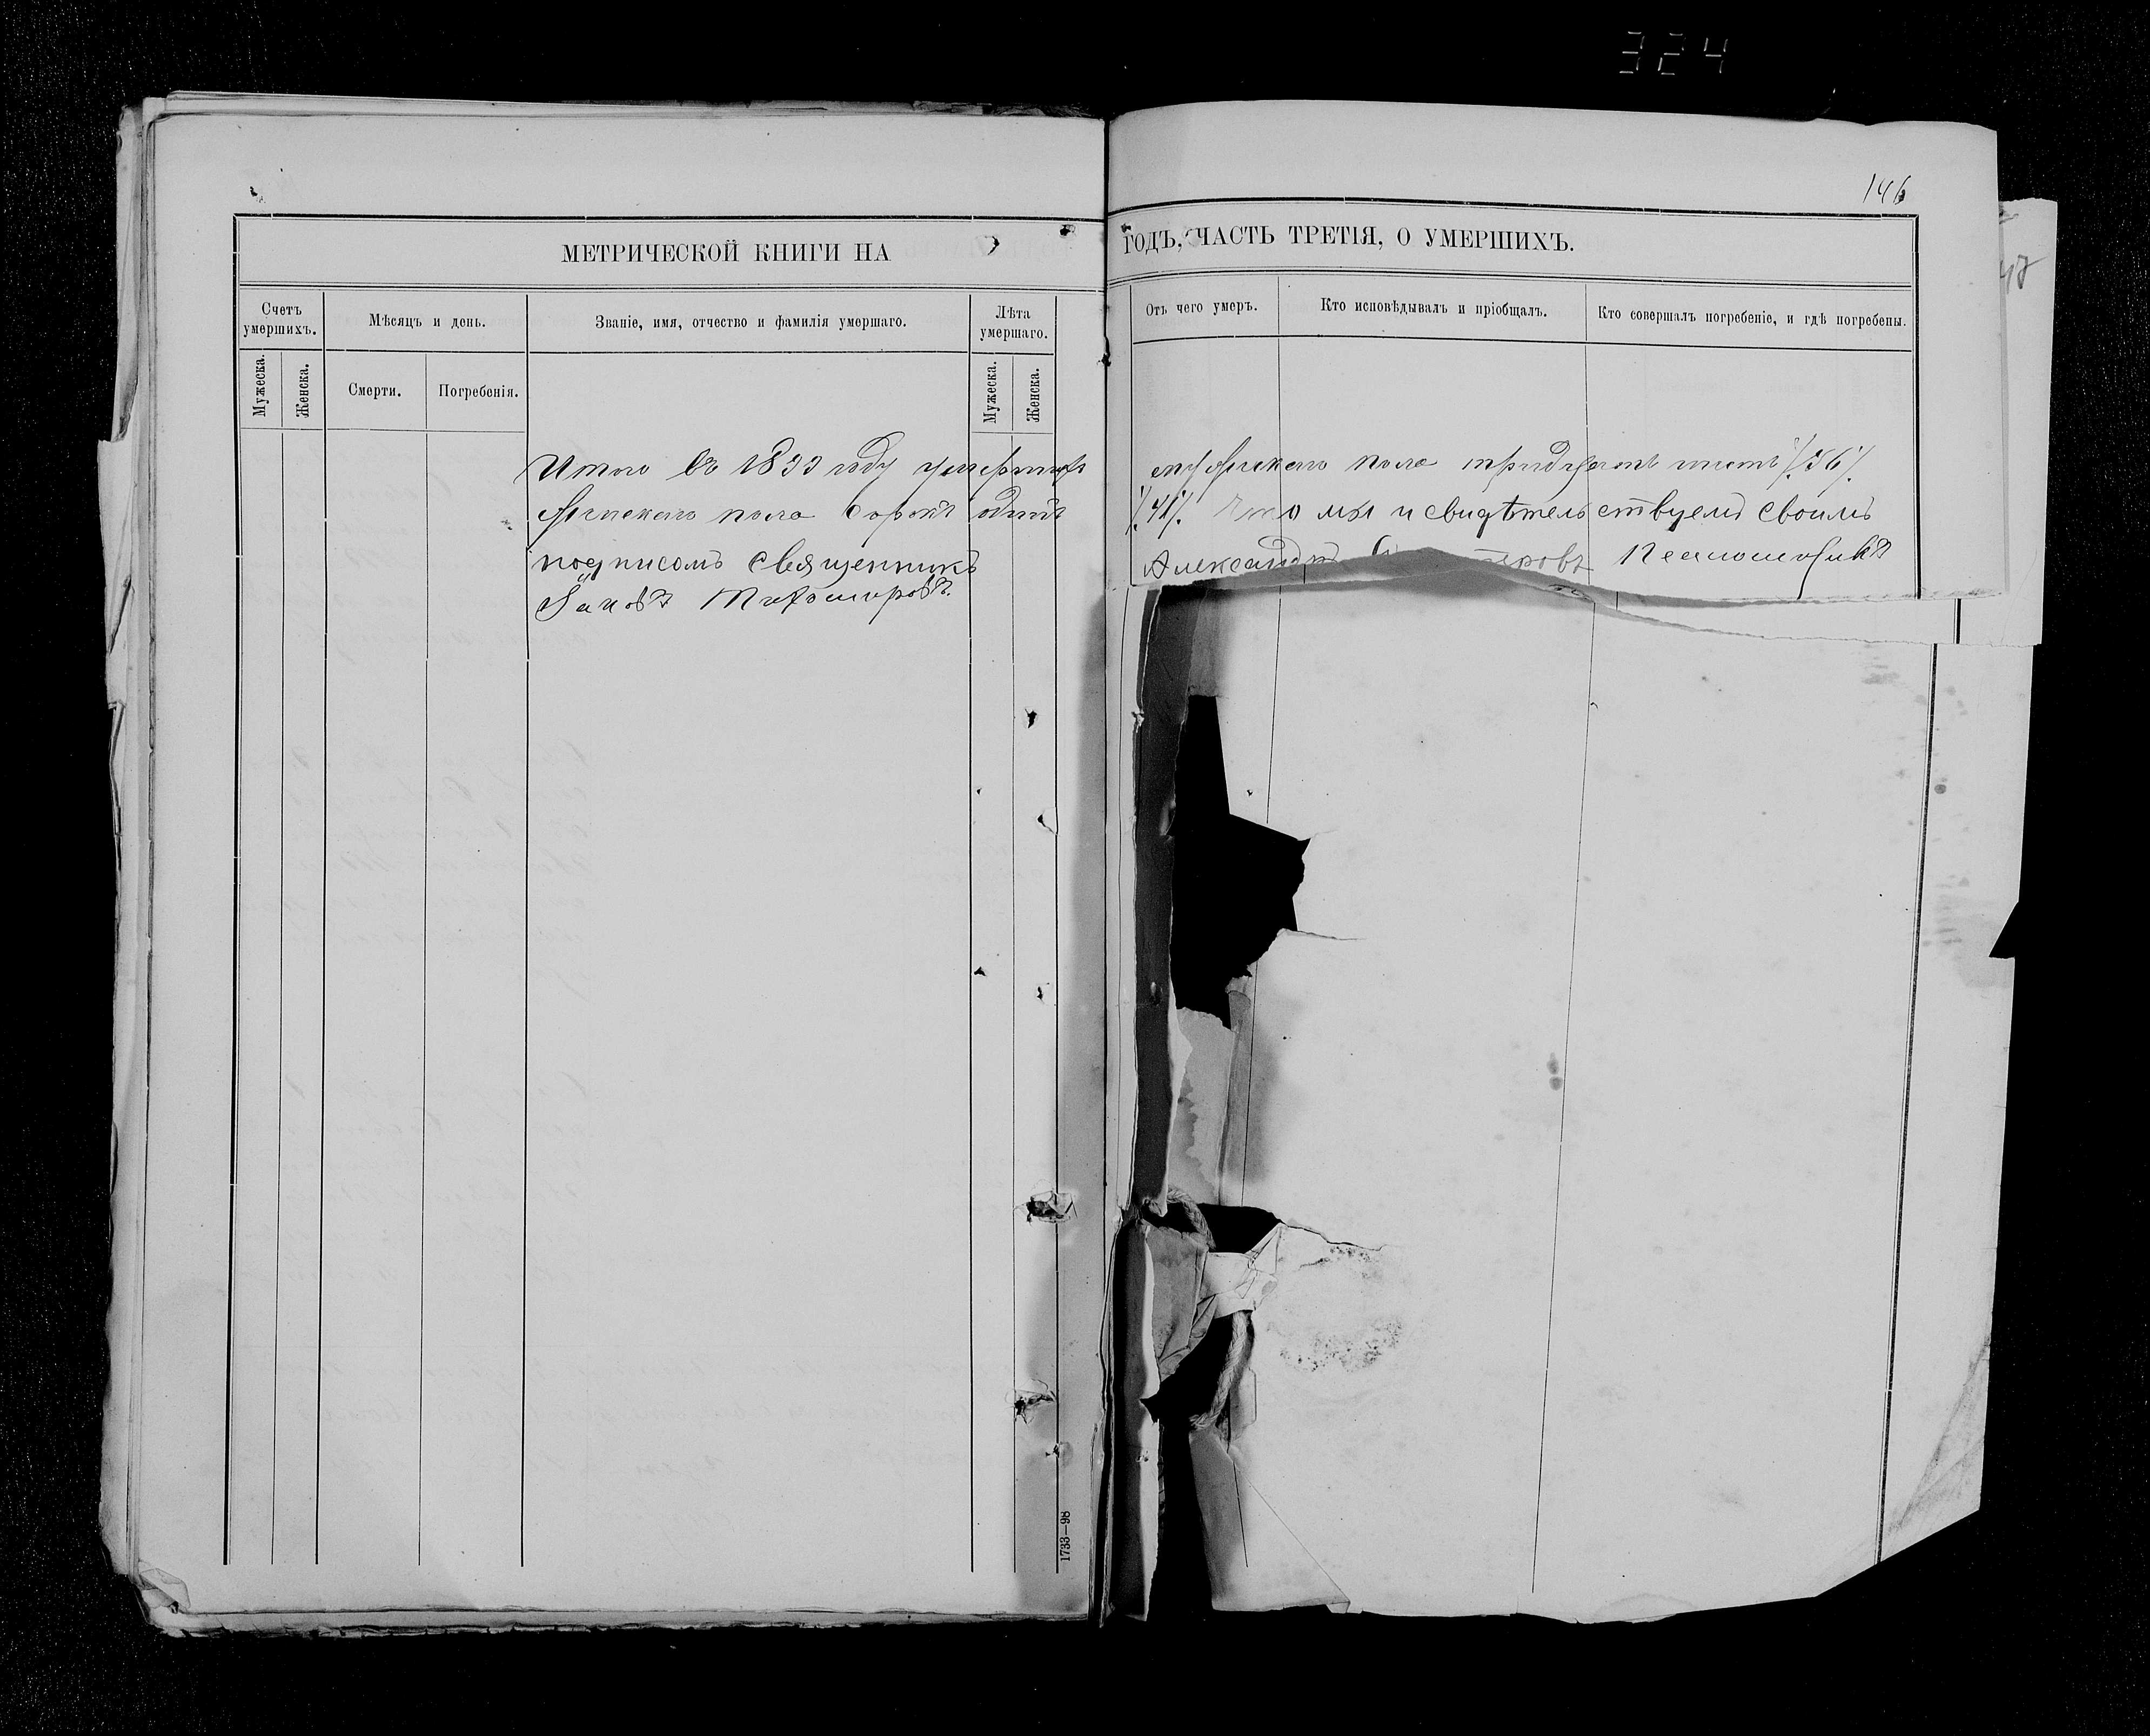 324
146
МЕТРИЧЕСКОЙ КНИГИ НА ГОДЪ, ЧАСТЬ ТРЕТІЯ, О УМЕРШИХЪ.
Счетъ умершихъ.
Мѣсяцъ и день.
Званіе, имя, отчество и фамилія умершаго.
Лѣта умершаго.
Отъ чего умеръ.
Кто исповѣдывалъ и пріобщалъ.
Кто совершалъ погребеніе, и гдѣ погребены.
Мужеска.
Женска.
Смерти.
Погребенія.
Мужеска.
Женска.
Итого въ 1899 году умершихъ мужескаго пола тридцать шесть /36/.
Женскаго пола сорокъ одинъ /41/. Что мы и свидѣтельствуемъ своимъ
подписомъ священникъ Александръ
Яковъ
1733—98